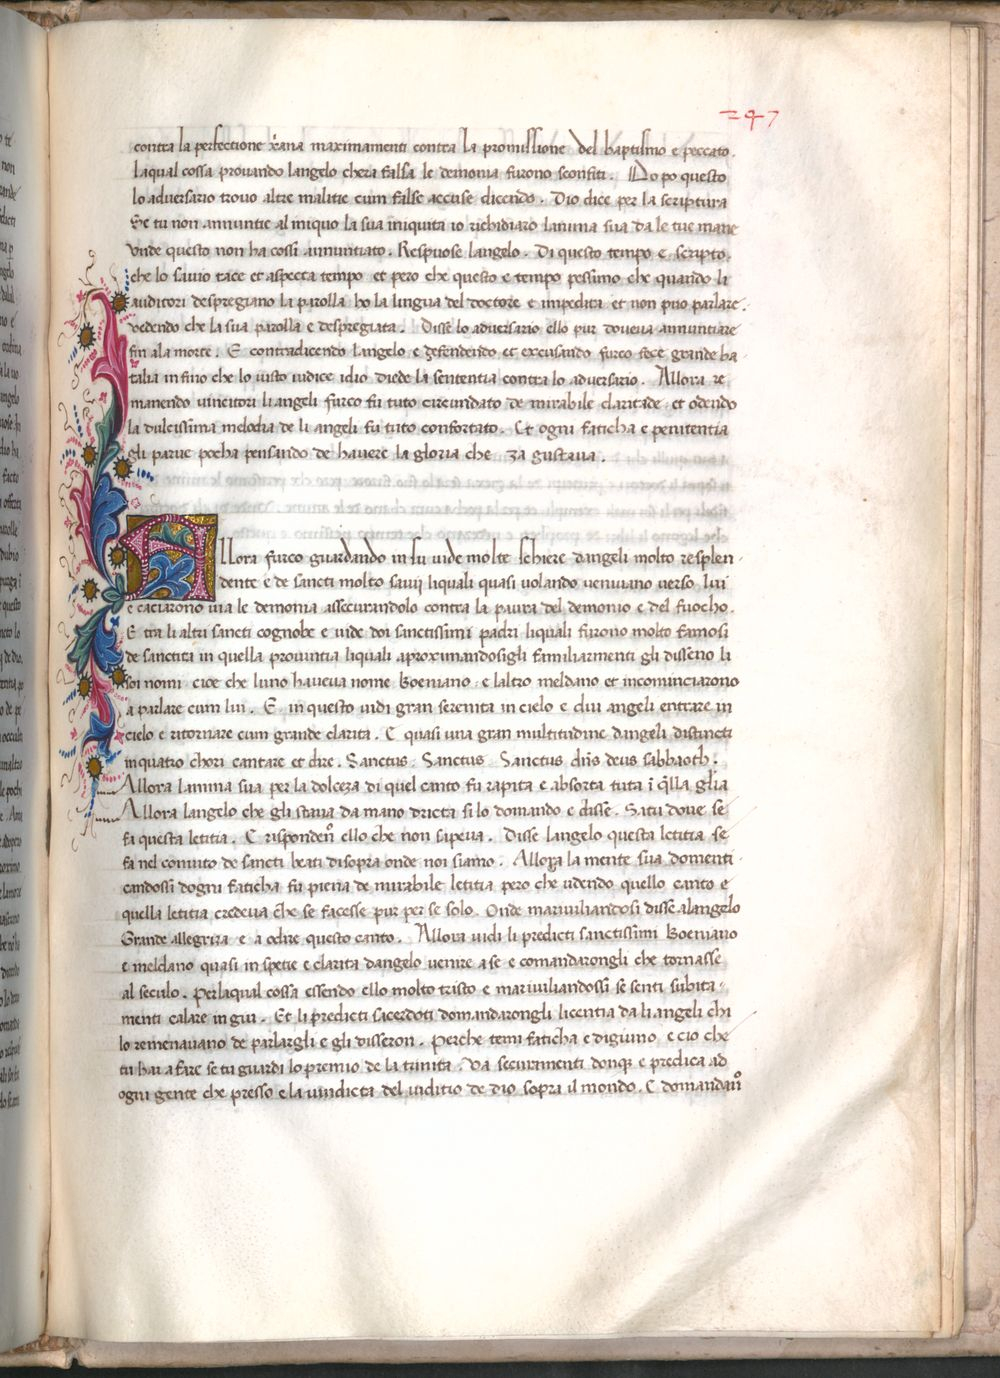 247
contra la perfectione xr̄ana maximamenti contra la promissione del baptismo e peccato.
laqual cossa prouando langelo chera falsa le demonia furono sconfiti. Do po questo
lo aduersario trouo altre malitie cum false accuse dicendo. Dio dice per la scriptura
Se tu non annuntie al iniquo la sua iniquita io richidiaro lanima sua da le tue mane
Vnde questo non ha cossi annuntiato. Respuose langelo. Di questo tempo e scripto.
che lo sauio tace et aspecta tempo et pero che questo e tempo pessimo che quando li
auditori despregiano la parolla ho la lingua del doctore e impedita et non puo parlare.
vedendo che la sua parolla e despregiata. Disse lo aduersario ello pur doueua annuntiare
fin ala morte. E contradicendo langelo e defendendo et excusando furco fece grande ba
talia in fino che lo iusto iudice idio diede la sententia contra lo aduersario. Allora re
manendo vincitori li angeli furco fu tuto circundato de mirabile claritade et odendo
la dulcissima melodia de li angeli fu tuto confortato. Et ogni faticha e penitentia
gli parue pocha pensando de hauere la gloria che za gustaua.
Allora furco guardando in su vide molte schiere dangeli molto resplen
dente e de sancti molto sauij liquali quasi volando veniuano verso lui
e caciarono uia le demonia assecurandolo contra la paura del demonio e del fuocho.
E tra li altri sancti cognobe e uide doi sanctissimi padri liquali furono molto famosi
de sanctita in quella prouintia liquali aproximandosigli familiarmenti gli disseno li
soi nomi cioe che luno haueua nome Boeniano e laltro meldano et incominciarono
a parlare cum lui. E in questo uidi gran serenita in cielo e dui angeli entrare in
cielo e ritornare cum grande clarita. E quasi una gran multitudine dangeli distincti
in quatro chori cantare et dire. Sanctus Sanctus Sanctus dn̄s deus sabbaoth.
Allora lanima sua per la dolceza di quel canto fu rapita e absorta tuta ī q̄lla glīa
Allora langelo che gli staua da mano dricta si lo domando e disse. Satu doue se
fa questa letitia. E rispondeñ ello che non sapeua. Disse langelo questa letitia se
fa nel conuito de sancti beati disopra onde noi siamo. Allora la mente sua domenti
candossi dogni faticha fu piena de mirabile letitia pero che udendo quello canto e
quella letitia credeua che se facesse pur per se solo. Onde marauiliandosi disse alangelo
Grande allegrira e a odire questo canto. Allora uidi li predicti sanctissimi Boeniano
e meldano quasi in spetie e clarita dangelo venire a se e comandarongli che tornasse
al seculo. Perlaqual cossa essendo ello molto tristo e marauiliandossi se senti subita
menti calare in giu. Et li predicti sacerdoti domandarongli licentia da li angeli chi
lo remenauano de parlargli e gli disseron. Perche temi faticha e digiuno e cio che
tu hai a fare se tu guardi lo premio de la trinita. Va securamenti donqȝ e predica ad
ogni gente che presso e la vindicta del iuditio de dio sopra il mondo. E domandañ